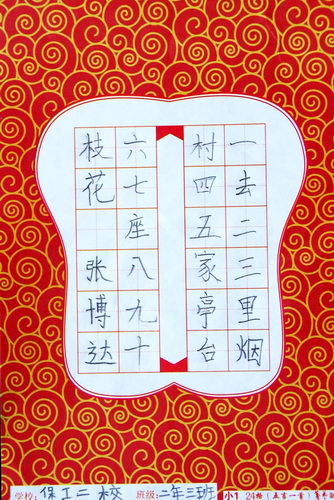 一去二三里烟
村四五家亭台
六七座八九十
枝花 张博达
学校: 保工二校 班级: 二年三班 小1 24格(五言一首)